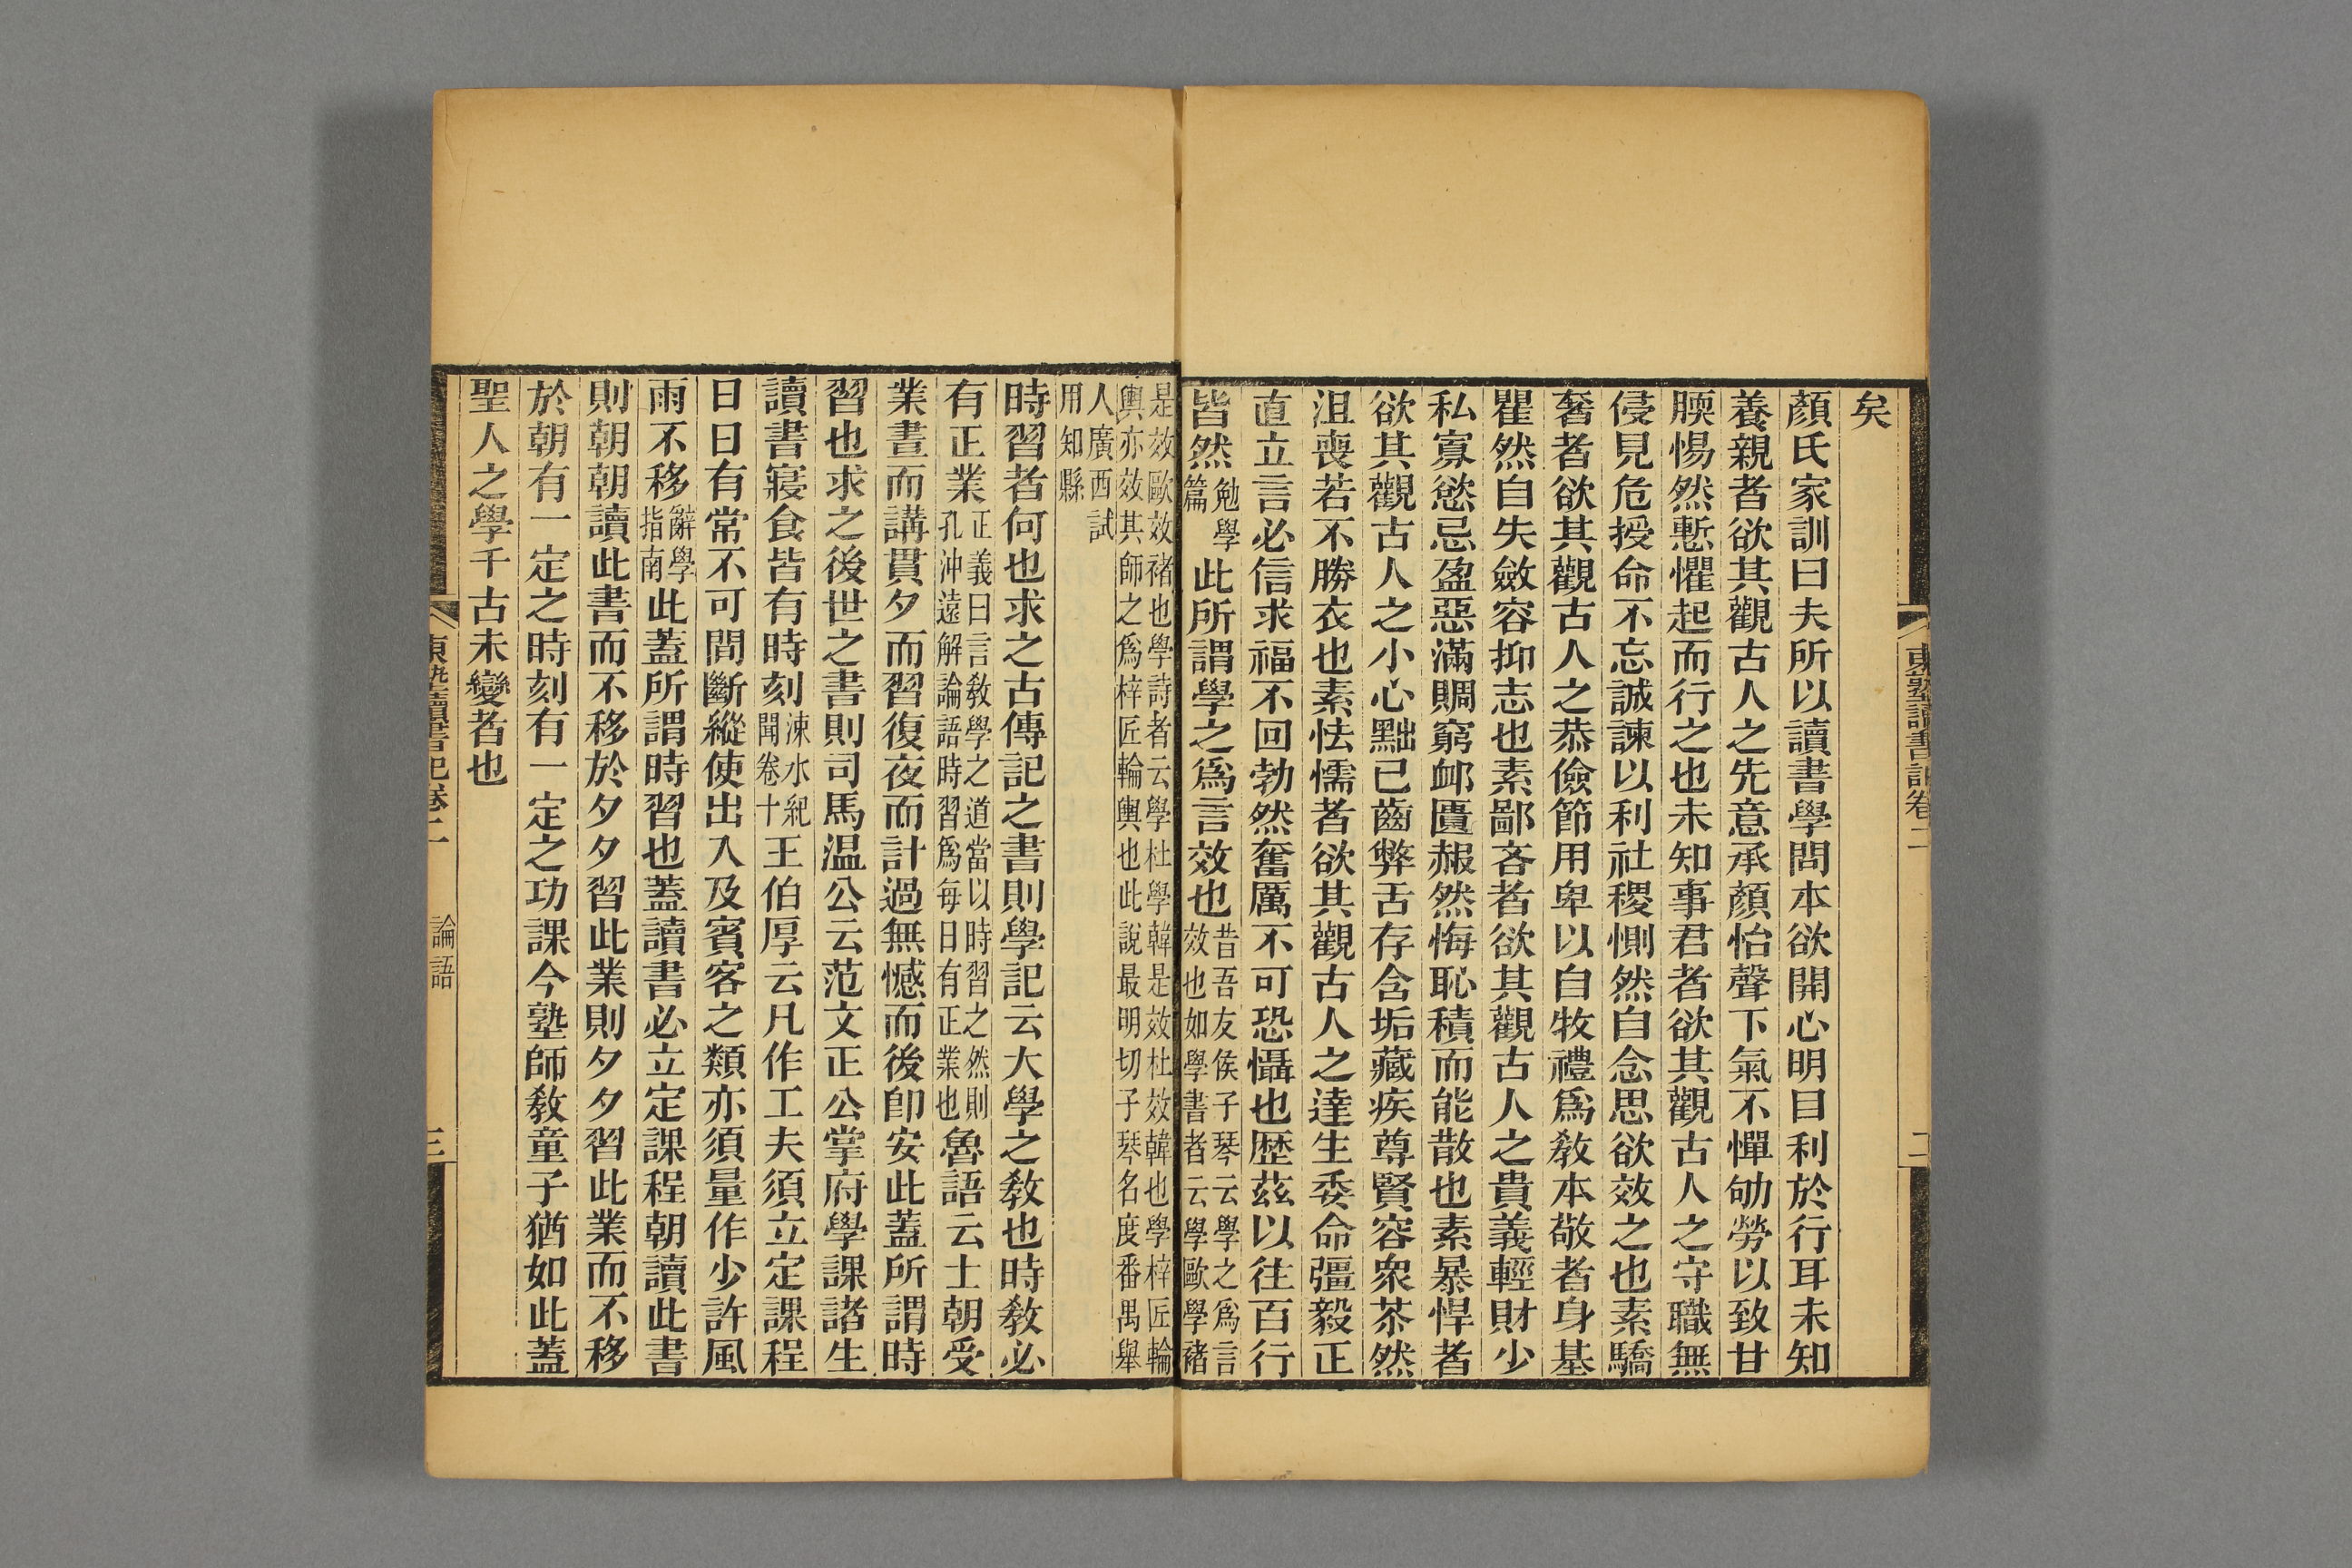 矣
顏氏家訓曰夫所以讀書學問本欲開心明目利於行耳未知
養親者欲其觀古人之先意承顏怡聲下氣不憚劬勞以致甘
腝惕然慙懼起而行之也未知事君者欲其觀古人之守職無
侵見危授命不忘誠諫以利社稷惻然自念思欲效之也素驕
奢者欲其觀古人之恭儉節用卑以自牧禮爲敎本敬者身基
瞿然自失斂容抑志也素鄙吝者欲其觀古人之貴義輕財少
私寡慾忌盈惡滿賙窮卹匱赧然悔恥積而能散也素暴悍者
欲其觀古人之小心黜己齒弊舌存含垢藏疾尊賢容衆苶然
沮喪若不勝衣也素怯懦者欲其觀古人之達生委命彊毅正
直立言必信求福不回勃然奮厲不可恐懾也歷茲以往百行
皆然勉學篇此所謂學之爲言效也昔吾友侯子琴云學之爲言效也如學書者云學歐學褚
是效歐效褚也學詩者云學杜學韓是效杜效韓也學梓匠輪
輿亦效其師之爲梓匠輪輿也此說最明切子琴名度番禺舉
人廣西試用知縣
時習者何也求之古傳記之書則學記云大學之敎也時敎必
有正業正義曰言敎學之道當以時習之然則孔沖遠解論語時習爲每日有正業也魯語云士朝受
業晝而講貫夕而習復夜而計過無憾而後卽安此蓋所謂時
習也求之後世之書則司馬温公云范文正公掌府學課諸生
讀書寢食皆有時刻涑水紀聞卷十王伯厚云凡作工夫須立定課程
日日有常不可間斷縱使出入及賓客之類亦須量作少許風
雨不移辭學指南此蓋所謂時習也蓋讀書必立定課程朝讀此書
則朝朝讀此書而不移於夕夕習此業則夕夕習此業而不移
於朝有一定之時刻有一定之功課今塾師敎童子猶如此蓋
聖人之學千古未變者也
東塾讀書記卷二
論語
三